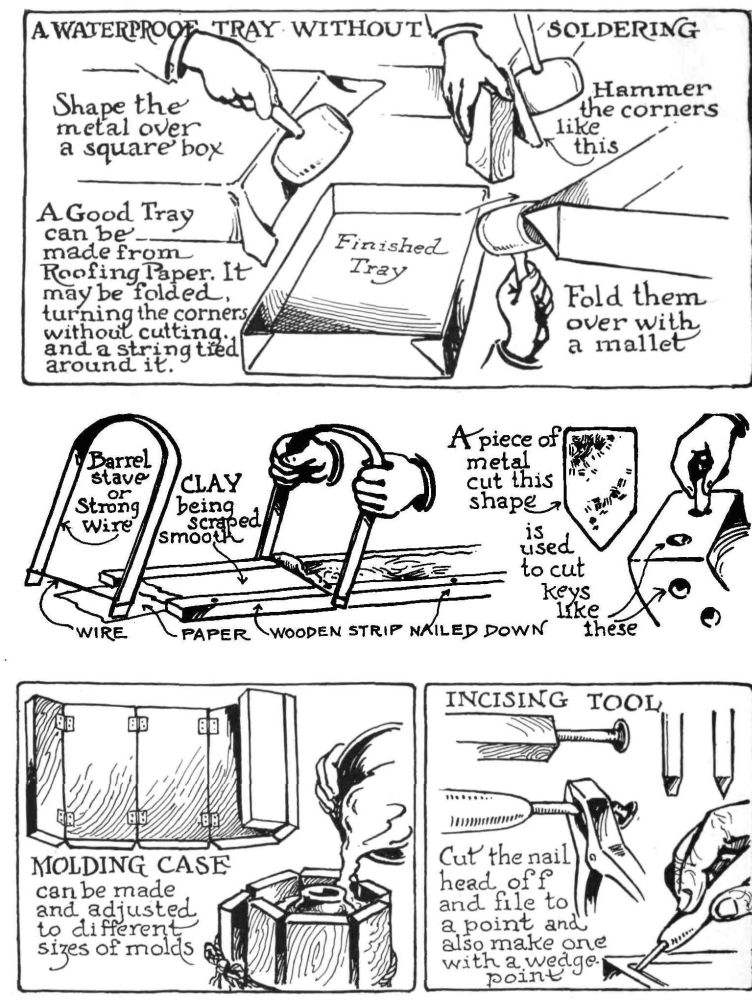 A WATERPROOF TRAY WITHOUT SOLDERING
Shape the
metal over
a square box
Hammer
the corners
like
this
A Good Tray
can be
made from
Roofing Paper. It
may be folded,
turning the corners
without cutting,
and a string tied
around it.
Finished
Tray
Fold them
over with
a mallet
Barrel
stave
or
Strong
Wire
CLAY
being
scraped
smooth
WIRE
PAPER
WOODEN STRIP NAILED DOWN
A piece of
metal
cut this
shape
is
used
to cut
keys
like
these
MOLDING CASE
can be made
and adjusted
to different
sizes of molds
INCISING TOOL
Cut the nail
head off
and file to
a point and
also make one
with a wedge-
point